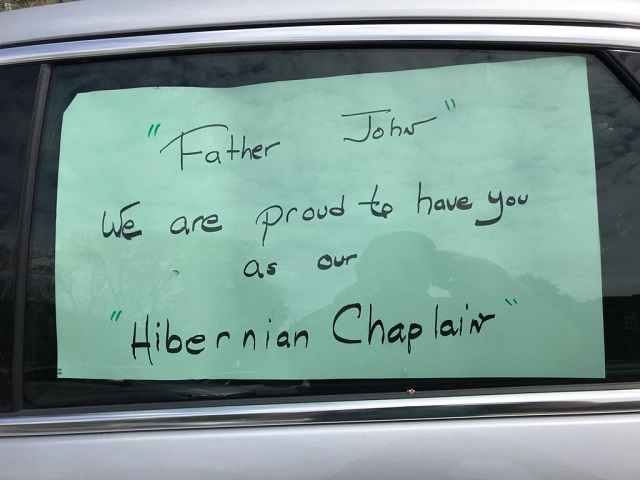 "Father John"
We are proud to have you
as our
"Hibernian Chaplain"